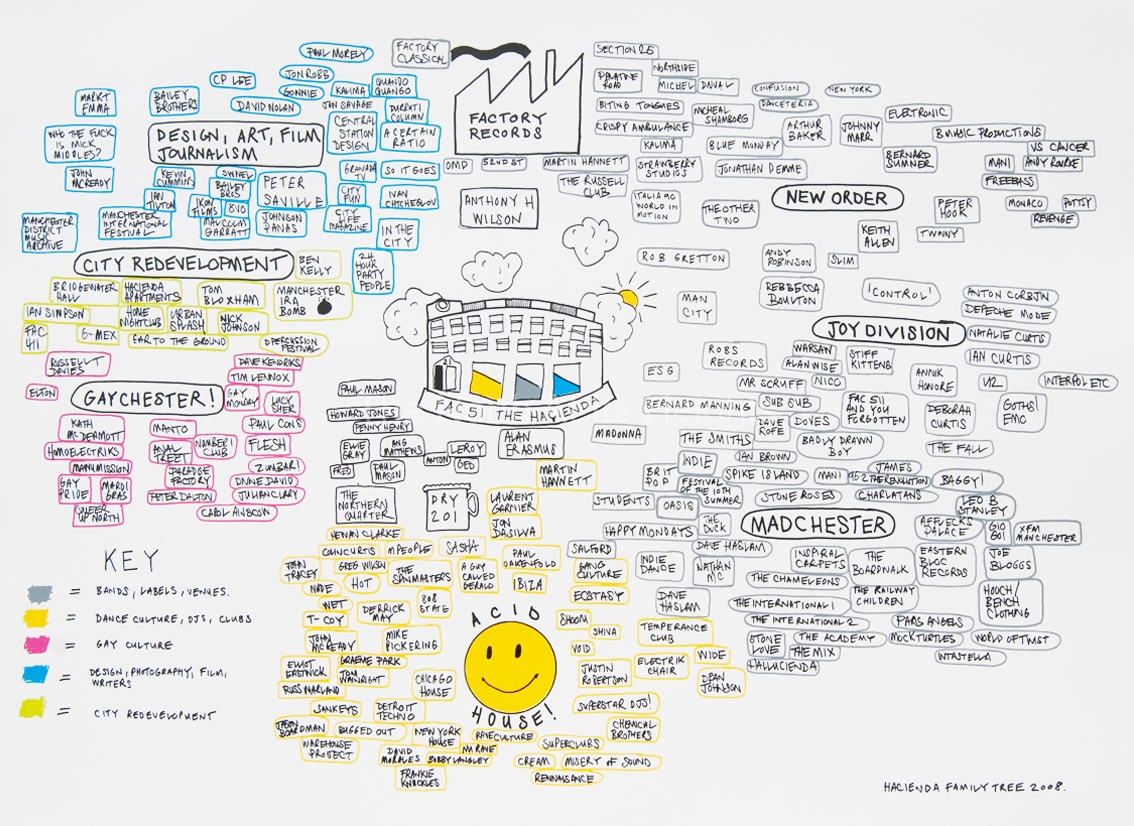 PAUL MORELY
FACTORY
CLASSICAL
SECTION 25
CP LEE
JON ROBB
GONNIE
KALIMA
QUANDO
QUANGO
MARKT
EMMA
BAILEY
BROTHERS
DAVID NOLAN
JON SAVAGE
DURRTI
COLUMN
DESIGN, ART, FILM
JOURNALISM
CENTRAL
STATION
DESIGN
A CERTAIN
RATIO
WHO THE FUCK
IS MICK
MIDDLES?
JOHN
MCREADY
KEVIN
CUMMINS
SWINEL
BAILEY
BROS
IAN
TILTON
IKON
FILMS
8VO
PETER
SAVILLE
GRANADA
TV
SO IT GOES
CITY
FUN
IVAN
CHTCHEGLOV
MANCHESTER
DISTRICT
MUSIC
ARCHIVE
MANCHESTER
INTERNATIONAL
FESTIVAL
MALCOLM
GARRATT
JOHNSON
PANAS
CITY
LIFE
MAGAZINE
IN THE
CITY
24
HOUR
PARTY
PEOPLE
FACTORY
RECORDS
OMD
52ND ST
MARTIN HANNETT
THE RUSSELL
CLUB
ANTHONY H
WILSON
PALATINE
ROAD
NORTHSIDE
MICHEL
DUVAL
CONFUSION
NEW YORK
BITING TONGUES
MCHEAL
SHAMBORG
DANCETERIA
CRISPY AMBULANCE
ARTHUR
BAKER
JOHNNY
MARR
ELECTRONIC
BMUSIC PRODUCTIONS
KALIMA
BLUE MONDAY
VS CANCER
STRAWBERRY
STUDIOS
JONATHAN DEMME
BERNARD
SUMNER
MANI
ANDY ROURKE
FREEBASS
ITALIA 90
WORLD IN
MOTION
THE OTHER
TWO
NEW ORDER
PETER
HOOK
MONACO
POTTSY
REVENGE
KEITH
ALLEN
TWINNY
ROB GRETTON
ANDY
ROBINSON
SLIM
MAN
CITY
REBBECCA
BOULTON
'CONTROL'
ANTON CORBIJN
DEPECHE MODE
JOY DIVISION
NATALIE CURTIS
IAN CURTIS
CITY REDEVELOPMENT
BEN
KELLY
BRIDGEWATER
HALL
HACIENDA
APARTMENTS
TOM
BLOXHAM
MANCHESTER
IRA
BOMB
IAN SIMPSON
HOME
NIGHTCLUB
URBAN
SPLASH
NICK
JOHNSON
FAC
411
G-MEX
EAR TO THE GROUND
DPERCUSSION
FESTIVAL
RUSSELL T
DAVIES
DAVE KENDRIKS
TIM LENNOX
ELTON
GAYCHESTER!
GAY
MONDAY
LUCY
SHER
KATH
MCDERMOTT
MANTO
PAUL CONS
HOMOELECTRIKS
AVAL
TREET
NUMBER 1
CLUB
FLESH
MANUMISSION
PARADISE
FACTORY
ZUMBAR!
GAY
PRIDE
MARDI
GRAS
PETER DALTON
DIVINE DAVID
JULIAN CLARY
QUEER
UP NORTH
CAROL AINSCOW
FAC 51 THE HAÇIENDA
PAUL MASON
HOWARD JONES
PENNY HENRY
EWIE
GRAY
ANG
MATTHEWS
LEROY
ALAN
ERASMUS
FRED
PAUL
MASON
ANTON
GED
THE
NORTHERN
QUARTER
DRY
201
MARTIN
HANNETT
LAURENT
GARNIER
JON
DASILVA
ESG
ROBS
RECORDS
WARSAW
ALAN WISE
STIFF
KITTENS
MR SCRUFF
NICO
ANNIK
HONORE
U2
INTERPOL ETC
BERNARD MANNING
SUB SUB
FAC 511
AND YOU
FORGOTTEN
DEBORAH
CURTIS
GOTHS!
EMO
MADONNA
THE SMITHS
DAVE
ROFE
DOVES
BADLY DRAWN
BOY
THE FALL
BRIT
POP
INDIE
IAN BROWN
SPIKE ISLAND
MANI
JAMES
BAGGY!
FESTIVAL
OF THE 10TH
SUMMER
STUDENTS
OASIS
STONE ROSES
CHARLATANS
LEO B
STANLEY
HAPPY MONDAYS
THE
DUCK
MADCHESTER
AFFLECKS
PALACE
GIO
GOI
XFM
MANCHESTER
INDIE
DANCE
DAVE HASLAM
NATHAN
MC
INSPIRAL
CARPETS
THE
BOARDWALK
EASTERN
BLOC
RECORDS
JOE
BLOGGS
THE CHAMELEONS
DAVE
HASLAM
THE INTERNATIONAL 1
THE RAILWAY
CHILDREN
HOOCH/
BENCH
CLOTHING
THE INTERNATIONAL 2
PARIS ANGELS
STONE
LOVE
THE ACADEMY
MOCKTURTLES
WORLD OF TWIST
THE MIX
HALLUCIENDA
INTASTELLA
HEWAN CLARKE
COUNCURTIS
M PEOPLE
SASHA
PAUL
OAKENFOLD
SALFORD
JOHN
TRACEY
GREG WILSON
THE
SPINMASTERS
A GUY
CALLED
GERALD
IBIZA
GANG
CULTURE
NUDE
HOT
808
STATE
ECSTASY
WET
T-COY
DERRICK
MAY
SHOOM
SHIVA
TEMPERANCE
CLUB
JOHN
MCREADY
MIKE
PICKERING
VOID
ELLIOT
EASTWICK
GRAEME PARK
TOM
WAINRIGHT
CHICAGO
HOUSE
JUSTIN
ROBERTSON
ELECTRIK
CHAIR
WIDE
DEAN
JOHNSON
RUSS MARLAND
ACID
HOUSE!
SANKEYS
DETROIT
TECHNO
SUPERSTAR DJS!
JASON
BOARDMAN
BUGGED OUT
NEW YORK
HOUSE
RAVE CULTURE
CHEMICAL
BROTHERS
WAREHOUSE
PROJECT
DAVID
MORALES
NU RAVE
BOBBY LANGLEY
SUPERCLUBS
CREAM
MISERY OF SOUND
FRANKIE
KNUCKLES
RENNAISANCE
KEY
= BANDS, LABELS, VENUES.
= DANCE CULTURE, DJS, CLUBS
= GAY CULTURE
= DESIGN, PHOTOGRAPHY, FILM,
WRITERS
= CITY REDEVELOPMENT
HACIENDA FAMILY TREE 2008.